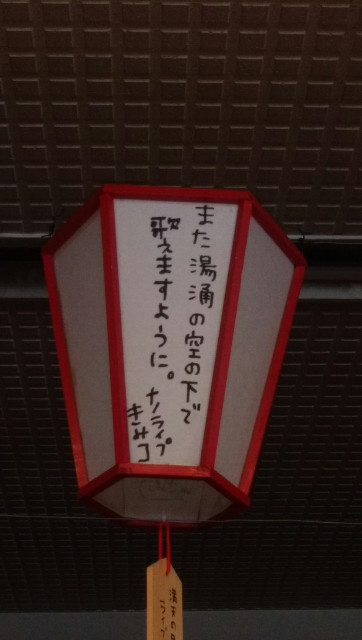 また湯涌の空の下で
歌えますように。
ナノライプ
きみコ